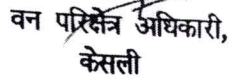 वन परिक्षेत्र अधिकारी,
केसली